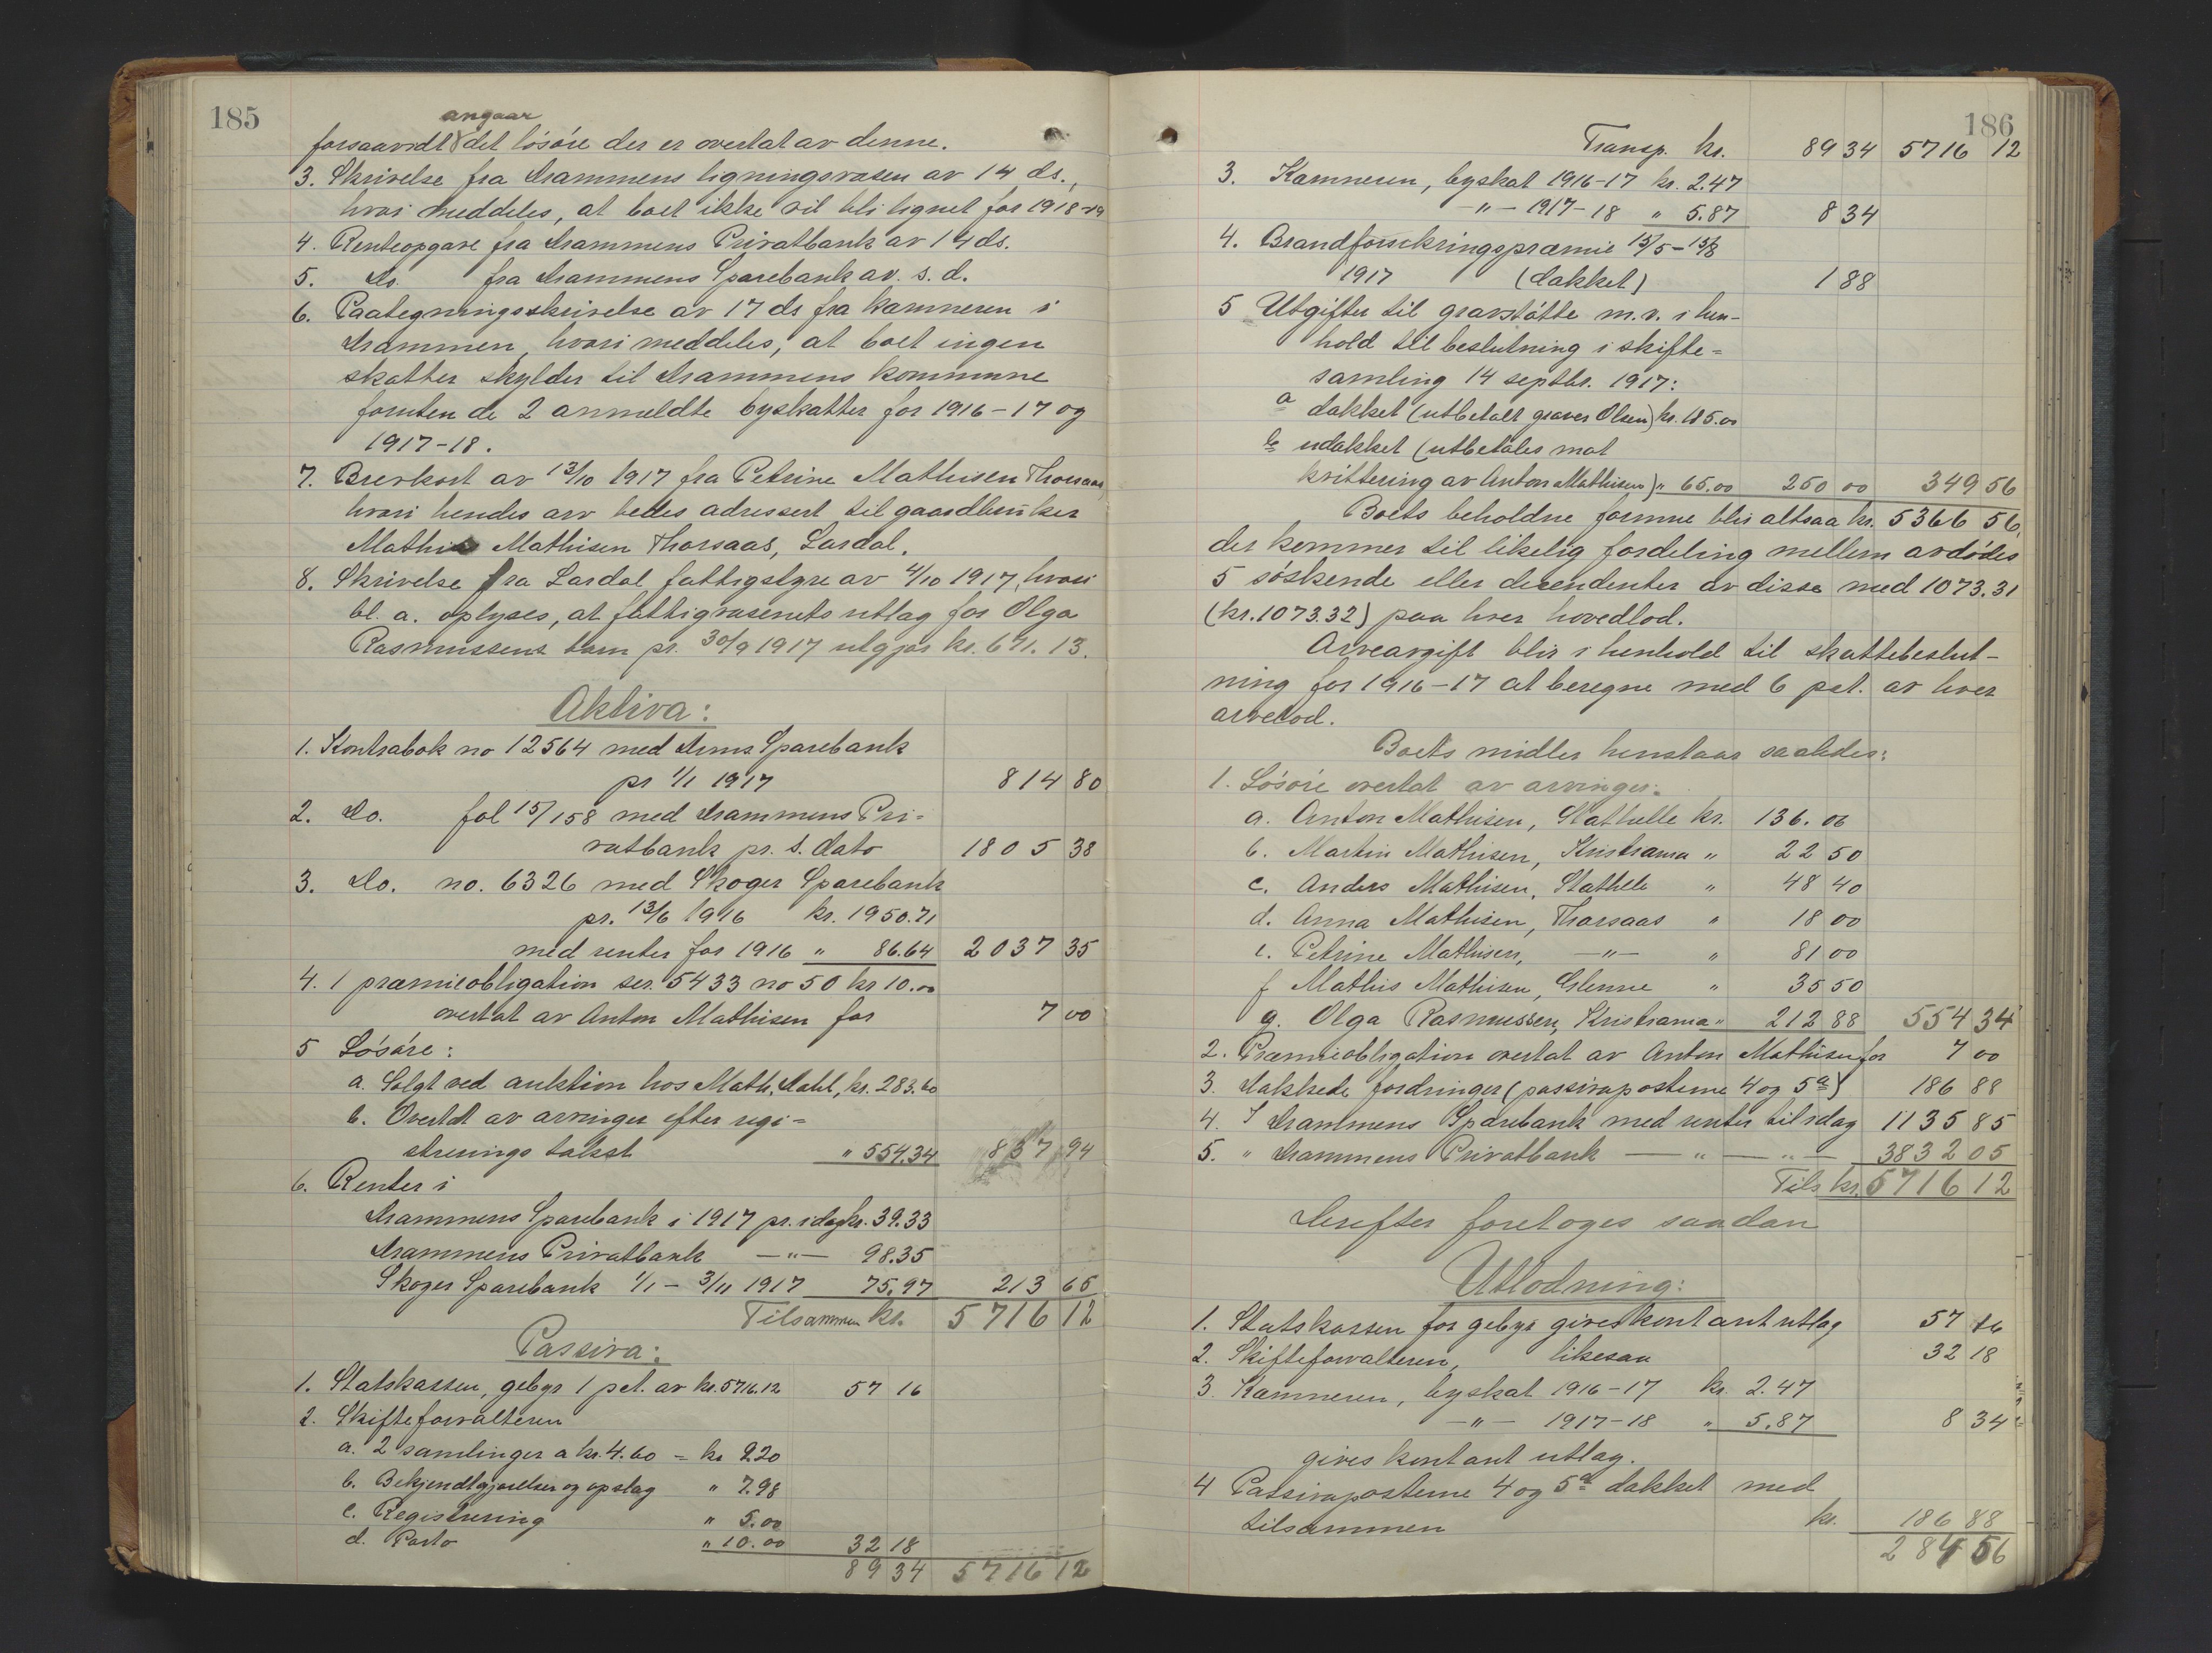 185
angaar
forsaavidt det løsøre der er overtat av denne.
3. Skrivelse fra Drammens ligningsvæsen av 14 ds.,
hvori meddeles, at boet ikke vil bli lignet for 1918-19
4. Renteopgave fra Drammens Privatbank av 14 ds.
5. Do. fra Drammens Sparebank av s. d.
6. Paategningsskrivelse av 17 ds fra kæmneren i
Drammen, hvori meddeles, at boet ingen
skatter skylder til Drammens kommune
foruten de 2 anmeldte byskatter for 1916-17 og
1917-18.
7. Brevkort av 13/10 1917 fra Petrine Mathisen Thorsaas
hvori hendes arv bedes adressert til gaardbruker
Mathis Mathisen Thorsaas, Lardal.
8. Skrivelse fra Lardal fattigstyre av 4/10 1917, hvori
bl. a. oplyses, at fattigvæsenets utlæg for Olga
Rasmussens barn pr. 30/9 1917 utgjør kr. 671.13.
Aktiva:
1. Kontrabok no 12564 med Drms Sparebank
pr 1/1 1917 814 80
2. Do. fol 15/158 med Drammens Pri-
vatbank pr. s. dato 1805 38
3. Do. no. 6326 med Skoger Sparebank
pr. 13/6 1916 kr. 1950.71
med renter for 1916 " 86.64 2037 35
4. 1 præmieobligation ser. 5433 no 50 kr 10.00
overtat av Anton Mathisen for 7 00
5 Løsøre:
a. Solgt ved auktion hos Math. Dahl, kr. 283.60
b. Overtat av arvinger efter regi-
strerings takst " 554.34 837 94
6. Renter i
Drammens Sparebank i 1917 pr. idag kr. 39.33
Drammens Privatbank -"- 98.35
Skoger Sparebank 1/1 - 3/11 1917 75.97 213 65
Tilsammen kr. 5716 12
Passiva:
1. Statskassen, gebyr 1 pct. av kr. 5716.12 57 16
2. Skifteforvalteren
a. 2 samlinger a kr. 4.60 = kr 9.20
b. Bekjendtgjørelser og opslag " 7.98
c. Registrering " 5.00
d. Porto " 10.00 32 18
89 34 5716 12
186
Transp. kr. 89 34 5716 12
3. Kæmneren, byskat 1916-17 kr. 2.47
-"- 1917-18 " 5.87 8 34
4. Brandforsikringspræmie 15/5-15/8
1917 (dækket) 1 88
5 Utgifter til gravstøtte m.v. i hen-
hold til beslutning i skifte-
samling 14 septbr. 1917:
a dækket (utbetalt graver Olsen) kr. 185.00
b udækket (utbetales mot
kvittering av Anton Mathisen) " 65.00 250 00 349 56
Boets beholdne formue blir altsaa kr. 5366 56,
der kommer til likelig fordeling mellem avdødes
5 søskende eller decendenter av disse med 1073.31
(kr. 1073.32) paa hver hovedlod.
Arveavgift blir i henhold til skattebeslut-
ning for 1916-17 at beregne med 6 pct. av hver
arvelod.
Boets midler henstaar saaledes:
1. Løsøre overtat av arvinger:
a. Anton Mathisen, Stathelle kr. 136.06
b. Martin Mathisen, Kristiania " 22 50
c. Anders Mathisen, Stathele " 48 40
d. Anna Mathisen, Thorsaas " 18 00
e. Petrine Mathisen, -"- " 81 00
f Mathis Mathisen, Glenne " 35 50
g. Olga Rasmussen, Kristiania " 212 88 554 34
2. Præmieobligation overtat av Anton Mathisen for 7 00
3. Dækkede fordringer (passivaposterne 4 og 5a) 186 88
4. I Drammens Sparebank med renter til idag 1135 85
5. " Drammens Privatbank - " - " - 3832 05
Tils kr. 5716 12
Derefter foretoges saadan
Utlodning:
1. Statskassen for gebyr gives kontant utlæg 57 16
2. Skifteforvalteren, likesaa 32 18
3. Kæmneren, byskat 1916-17 kr. 2.47
-"- 1917-18 " 5.87 8 34
gives kontant utlæg.
4 Passivaposterne 4 og 5a dækket med
tilsammen kr. 186 88
284 56